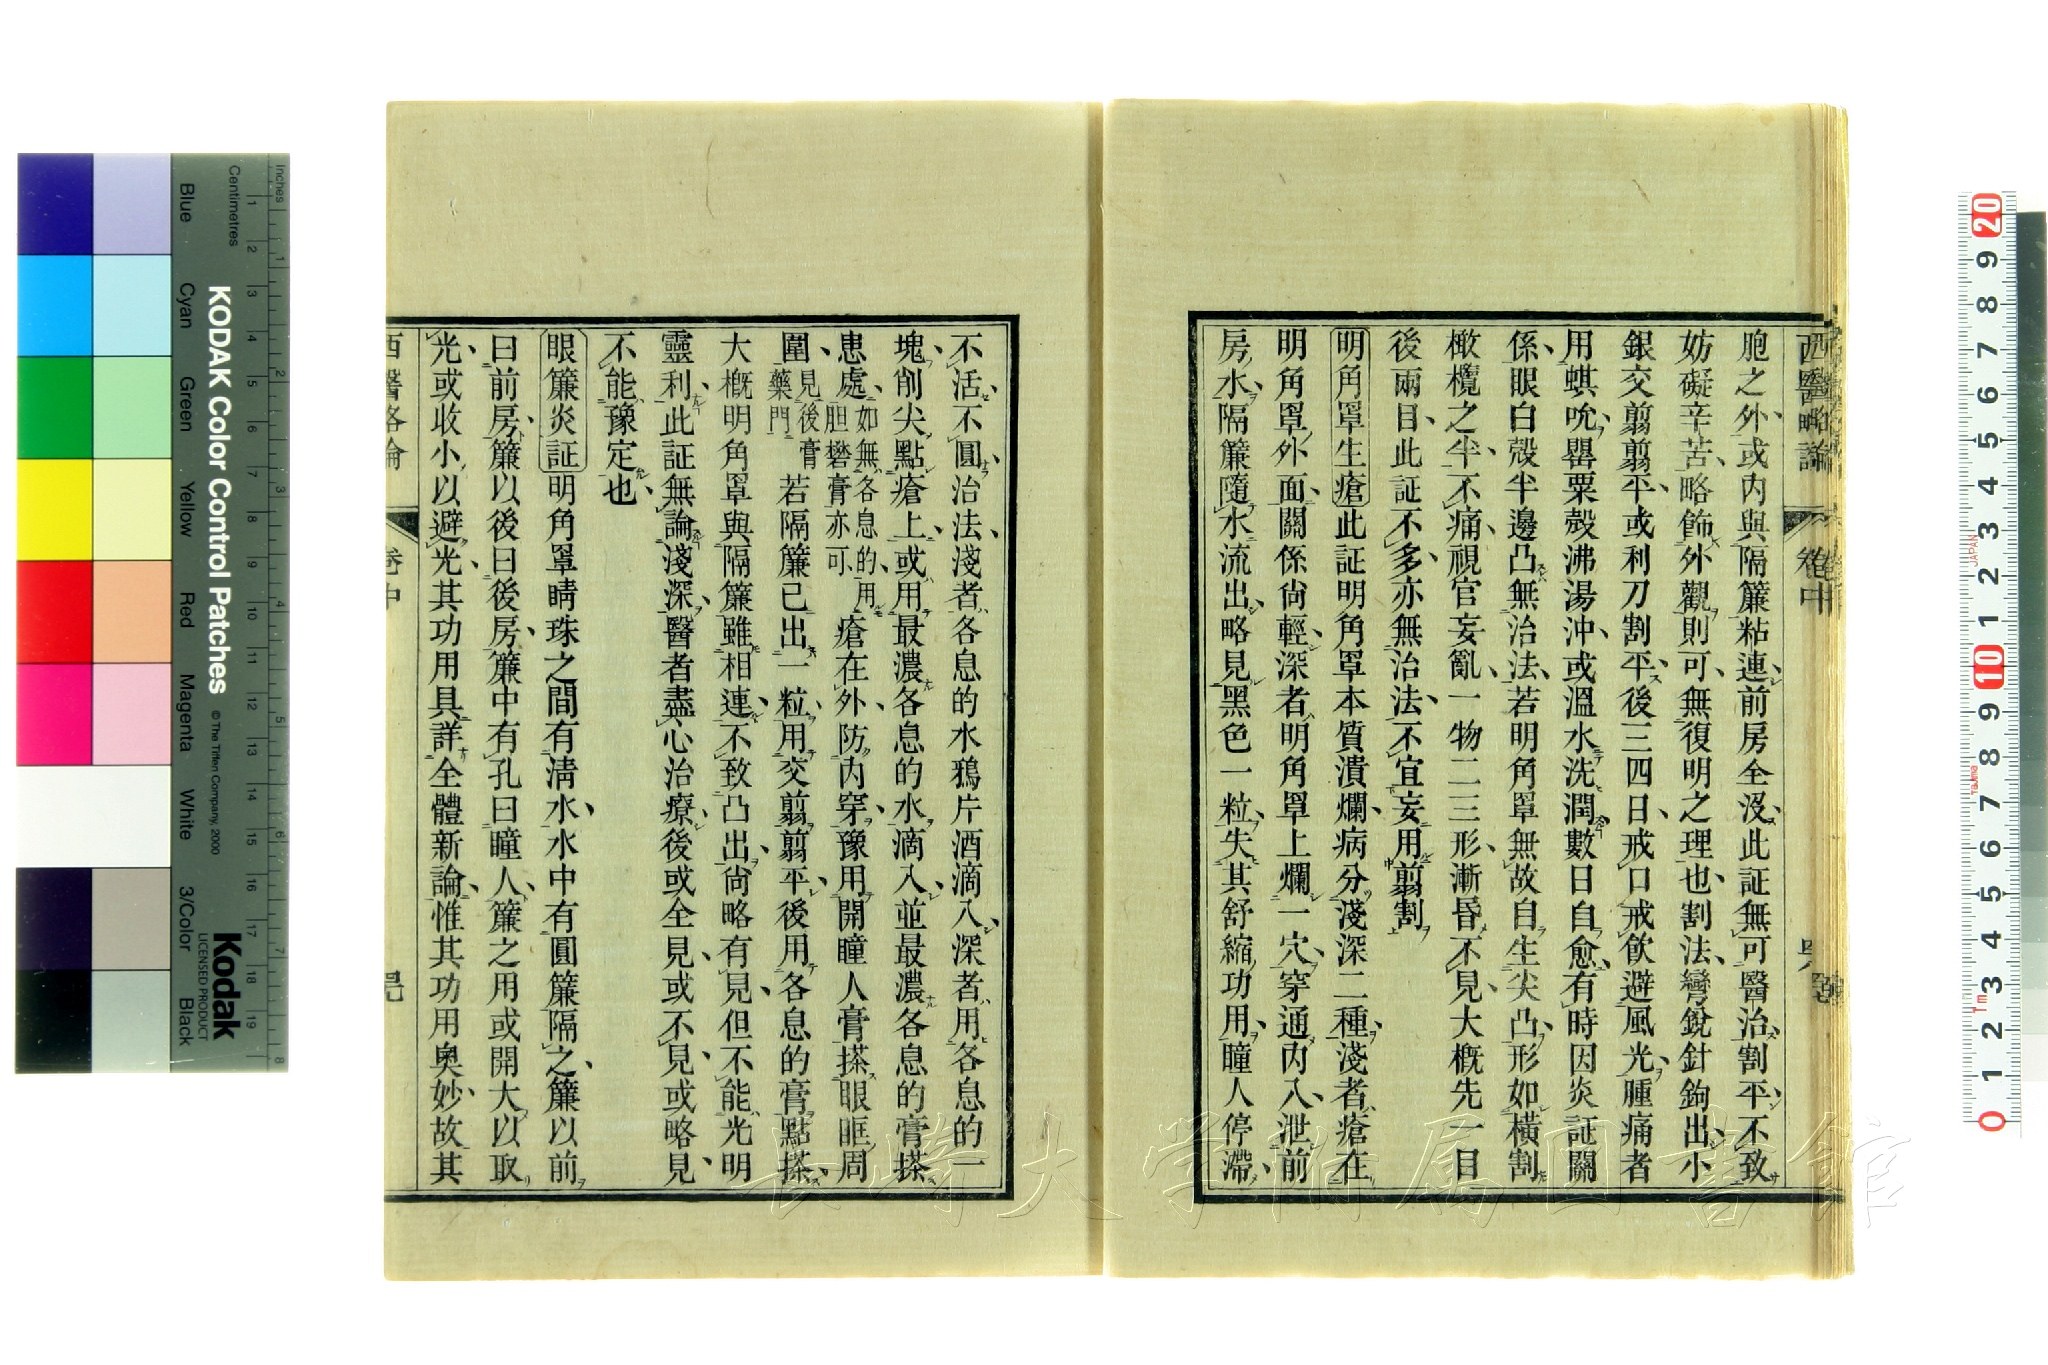 西醫略論 卷中
胞之外或內與隔簾粘連前房全沒此証無可醫治割平不致
妨礙辛苦略飾外觀則可無復明之理也割法彎銳針鉤出小
銀交翦翦平或利刀割平後三四日戒口戒飲避風光腫痛者
用蜞吮罌粟殼沸湯沖或溫水洗潤數日自愈有時因炎証關
係眼白殼半邊凸無治法若明角罩無故自生尖凸形如橫割
橄欖之半不痛視官妄亂一物二三形漸昏不見大概先一目
後兩目此証不多亦無治法不宜妄用翦割
明角罩生瘡此証明角罩本質潰爛病分淺深二種淺者瘡在
明角罩外面關係尙輕深者明角罩上爛一穴穿通內入泄前
房水隔簾隨水流出略見黑色一粒失其舒縮功用瞳人停滯
不活不圓治法淺者各息的水鴉片酒滴入深者用各息的一
塊削尖點瘡上或用最濃各息的水滴入並最濃各息的膏搽
患處如無各息的用胆礬膏亦可瘡在外防內穿豫用開瞳人膏搽眼眶周
圍見後膏藥門若隔簾已出一粒用交翦翦平後用各息的膏點搽
大概明角罩與隔簾雖相連不致凸出尙略有見但不能光明
靈利此証無論淺深醫者盡心治療後或全見或不見或略見
不能豫定也
眼簾炎証明角罩睛珠之間有淸水水中有圓簾隔之簾以前
曰前房簾以後曰後房簾中有孔曰瞳人簾之用或開大以取
光或收小以避光其功用具詳全體新論惟其功用奧妙故其
西醫略論 卷中
KODAK Color Control Patches
© The Tiffen Company, 2000
Kodak
LICENSED PRODUCT
Inches
Centimetres
Blue
Cyan
Green
Yellow
Red
Magenta
White
3/Color
Black
長崎大学附属図書館